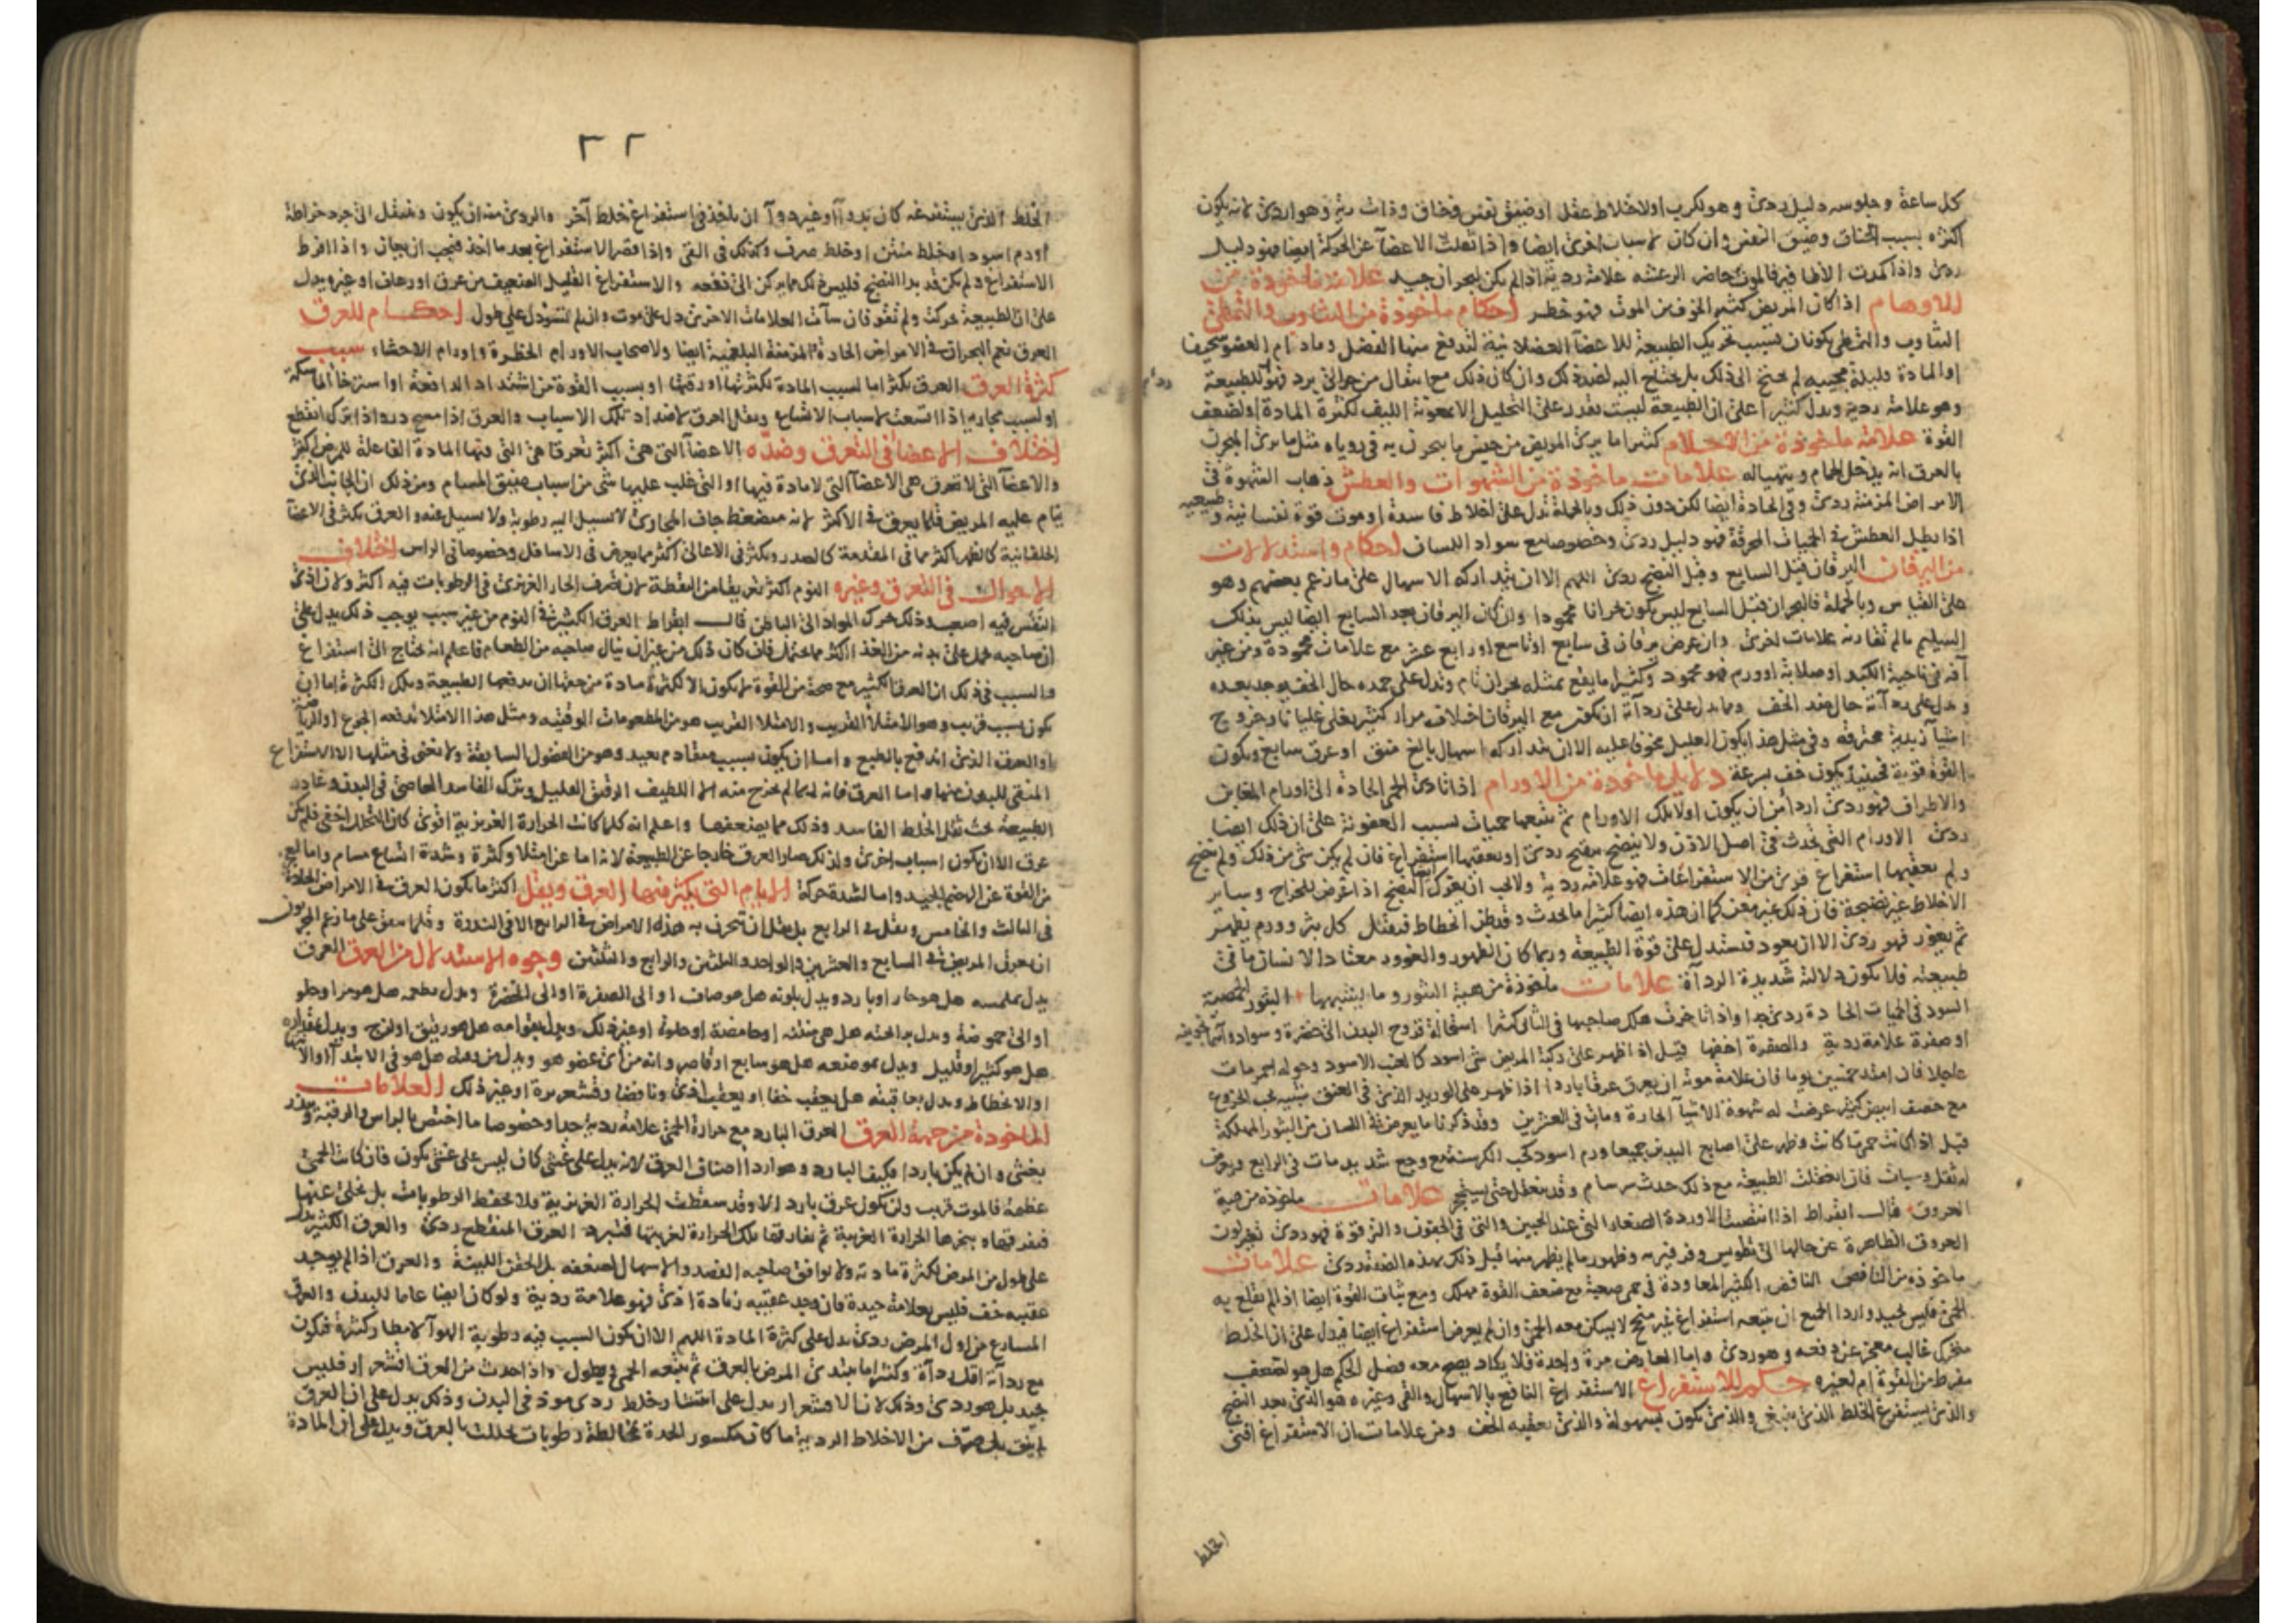 كل ساعة وجلوسه دليل ردئ وهو لكرب او لاختلاط عقل او ضيق نفس فى خناق وذات رية وهو اردئ لانه يكون
اكثره بسبب الخناق وضيق النفس وان كان لاسباب اخرى ايضا واذا ثقلت الاعضآ عن الحركة ايضا فهو دليل
ردئ واذا كمدت الاظافير فالموت حاضر الرعشه علامة ردية اذا لم يكن لبحران جيد علامة ماخوذة من
الاوهام اذا كان المريض كثير الخوف من الموت فهو خطر احكام ماخوذة من التثاوب والتمطى
التثاوب والتمطى يكونان بسبب تحريك الطبيعة للاعضآ العضلانية لتدفع منها الفضل وما دام العضو سخيفا
او المادة قليلة مجيبه لم يحتج الى ذلك بل يحتاج اليه لضد ذلك وان كان ذلك مع انتقال من حر الى برد فهو للطبيعة
وهو علامة ردية ويدل كثيرا على ان الطبيعة ليست تقدر على التحليل الا بمعونة الليف لكثرة المادة او لضعف
القوة علامة ماخوذة من الاحلام كثيرا ما يرى المريض من جنس ما يبحرن به فى روياه مثل ما يرى المبحرن
بالعرق انه يدخل الحمام ويتهيا له علامات ماخوذة من الشهوات والعطش ذهاب الشهوة فى
الامراض المزمنة ردئ وفى الحادة ايضا لكن دون ذلك وبالجملة تدل على اخلاط فاسدة او موت قوة نفسانية و طبيعيه
اذا بطل العطش فى الحميات المحرقة فهو دليل ردئ وخصوصا مع سواد اللسان احكام واستدلالات
من اليرقان اليرقان قبل السابع وقبل النضج ردئ اللهم الا ان يتداركه الاسهال على ما زعم بعضهم وهو
على القياس وبالجملة فالبحران قبل السابع ليس يكون بحرانا محمودا وان كان اليرقان بعد السابع ايضا ليس بذلك
السليم ما لم تقارنه علامات اخرى وان عرض يرقان فى سابع او تاسع او رابع عشر مع علامات محمودة ومن غير
آفة فى ناحية الكبد او صلابة او ورم فهو محمود وكثيرا ما يقع بمثله بحران تام وتدل على حمده حال الخف يوجد بعده
ويدل على ردآته حال ضد الخف ومما يدل على ردآته ان يكون مع اليرقان اختلاف مرار كثير يغلى غليانا وخروج
اشيآ زبدية محترقه وفى مثل هذا يكون العليل مخوفا عليه الا ان يتداركه اسهال بالغ منق او عرق سابغ ويكون
القوة قوية فحينئذ يكون خف بسرعة دلايل ماخوذة من الاورام اذا تادى الحمى الحادة الى اورام المغابن
والاطراف فهو ردئ اردأ من ان يكون اولا تلك الاورام ثم تتبعها حميات بسبب العفونة على ان ذلك ايضا
ردئ الاورام التى تحدث فى اصل الاذن ولا ينضج بقيح ردئ او يعقبها استفراغ فان لم يكن شى من ذلك ولم تفتح
ولم يعقبها استفراغ قوى من الاستفراغات فهو علامة ردية ولا يجب ان يغرك ايضا النضج اذا عرض للخراج وساير
الاخلاط غير نضيجة فان ذلك غير مغن كما ان هذه ايضا كثيرا ما يحدث وقد ظن انحطاط فتقتل كل بثر وورم يظهر
ثم يغور فهو ردئ الا ان يعود فتستدل على قوة الطبيعة وربما كان الظهور والغوور معتادا لانسان ما فى
طبيعته فلا يكون دلالة شديدة الردآة علامات ماخوذة من هيئة البثور وما يشبهها البثور الحمصية
السود فى الحميات الحادة ردئ جدا واذا تاخرت هلك صاحبها فى الثانى كثيرا استحالة قروح البدن الى خضرة وسواد واسمانجونيه
او صفرة علامة ردية والصفرة اخفها قيل اذا ظهر على ركبة المريض شى اسود كالعنب الاسود وحوله احمر مات
عاجلا فان امتد خمسين يوما فان علامة موته ان يعرق عرقا باردا اذا ظهر على الوريد الذى فى العنق شبيه بحب الخروع
مع حصف ابيض كثير عرضت له شهوة الاشيآ الحارة ومات فى العشرين وقد ذكرنا ما يعرض فى اللسان من البثور المهلكة
قيل اذا كانت حمى ما كانت وظهر على اصابع اليدين جميعا ورم اسود كحب الكرسنه مع وجع شديد مات فى الرابع ويعرض
له ثقل وسبات فان اعتقلت الطبيعة مع ذلك حدث سرسام وقد يعتقل حتى يستحجر علامات ماخوذه من هيئة
العروق قال ابقراط اذا انتفضت الاوردة الصغار التى عند الجبين والتى فى الجفون والترقوة فهو ردئ تغير لون
العروق الظاهرة عن حالها الى تطويس وفرفيرية وظهور ما لم يظهر منها قبل ذلك بهذه الصفة ردئ علامات
ماخوذه من النافض النافض الكثير المعاودة فى حمى صعبة مع ضعف القوة مهلك ومع ثبات القوة ايضا اذا لم تقلع به
الحمى فليس بجيد واردا الجميع ان يتبعه استفراغ غير منجح لا يسكن معه الحمى وان لم يعرض استفراغ ايضا فيدل على ان الخلط
متحرك غالب معجز عن دفعه وهو ردئ واما العارض مرة واحدة فلا يكاد يصح معه فضل الحكم هل هو لضعف
مفرط من القوة ام لغيره حكم للاستفراغ الاستفراغ النافع بالاسهال والقى وغيره هو الذى بعد النضج
والذى يستفرغ الخلط الذى ينبغى والذى يكون بسهولة والذى يعقبه الخف ومن علامات ان الاستفراغ انقى
الخلط
٣٢
الخلط الذى يستفرغه كان بدوآ او غير دوآ ان ياخذ فى استفراغ خلط آخر والردئ منه ان يكون وينتقل الى جرد خراطة
او دم اسود او خلط منتن او خلط صرف وكذلك فى القى واذا قصر الاستفراغ بعد ما اخذ فيجب ان يعان واذا افرط
الاستفراغ ولم يكن قد بدا النضج فليس ذلك مما يركن الى نفعه والاستفراغ القليل الضعيف من عرق او رعاف او غيره يدل
على ان الطبيعة تحركت ولم تقو فان سآت العلامات الاخرى دل على موت وان لم تسؤ دل على طول احكام للعرق
العرق نعم البحران فى الامراض الحادة والمزمنة البلغمية ايضا ولاصحاب الاورام الخطرة واورام الاحشاء سبب
كثرة العرق العرق يكثر اما لسبب المادة لكثرتها او رقتها او بسبب القوة من اشتداد الدافعة او استرخآ الماسكة
او لسبب مجاريه اذا اتسعت لاسباب الاتساع ويقل العرق لاضداد تلك الاسباب والعرق اذا مسح در واذا ترك انقطع
اختلاف الاعضآ فى التعرق وضدّه الاعضآ التى هى اكثر تعرقا هى التى فيها المادة الفاعلة للمرض اكثر
والاعضآ التى لا تعرق هى الاعضآ التى لا مادة فيها او التى غلب عليها شى من اسباب ضيق المسام ومن ذلك ان الجانب الذى
ينام عليه المريض قلما يعرق فى الاكثر لانه منضغط جاف المجارى لا تسيل اليه رطوبة ولا تسيل عنه والعرق يكثر فى الاعضآ
الخلفانية كالظهر اكثر مما فى المقدمة كالصدر ويكثر فى الاعالى اكثر مما يعرض فى الاسافل وخصوصا فى الراس اختلاف
الاحوال فى التعرق وغيره النوم اكثر تعريقا من اليقظة لان تصرف الحار الغريزى فى الرطوبات فيه اكثر ولان اذى
النفس فيه اصعب وذلك محرك المواد الى الباطن قال ابقراط العرق الكثير فى النوم من غير سبب يوجب ذلك يدل على
ان صاحبه يحمل على بدنه من الغذ اكثر مما يحتمل فان كان ذلك من غير ان ينال صاحبه من الطعام فاعلم انه يحتاج الى استفراغ
والسبب فى ذلك ان العرق الكثير مع صحة من القوة لا يكون الا لكثرة مادة من حقها ان يدفعها الطبيعة وتلك الكثرة اما ان
يكون بسبب قريب وهو الامتلآ القريب والامتلا القريب هو من المطعومات الوقتيه ومثل هذا الامتلا يدفعه الجوع او الرياضة
او العرق الذى اندفع بالطبع واما ان يكون بسبب متقادم بعيد وهو من الفضول السابقة ولا يغنى فى مثلها الا الاستفراغ
المنقى للبدن منها واما العرق فانه ربما لم يخرج منه الا اللطيف الرقيق القليل وترك الفاسد العاصى فى البدن وغادر
الطبيعة تحت ثقل الخلط الفاسد وذلك مما يضعفها واعلم انه كلما كانت الحرارة الغريزية اقوى كان التحلل اخفى فلم يكن
عرق الا ان يكون اسباب اخرى ولذلك صار العرق خارجا عن الطبيعة لانه اما عن امتلا وكثرة وشدة اتساع مسام واما لعجز
من القوة عن الهضم الجيد واما لشدة حركة الايام التى يكثر فيها العرق ويقل اكثر ما يكون العرق فى الامراض الحادة
فى الثالث والخامس ويقل فى الرابع بل يقل ان تبحرن به هذه الامراض فى الرابع الا فى الندرة وقلما يتفق على ما زعم المجربون
ان يعرق المريض فى السابع والعشرين والواحد والثلثين والرابع والثلثين وجوه الاستدلال من العرق العرق
يدل بملمسه هل هو حار او بارد ويدل بلونه هل هو صاف او الى الصفرة او الى الخضرة ويدل بطعمه هل هو مر او حلو
او الى حموضة ويدل برائحته هل هى منتنه او حامضة او حلوة او غير ذلك ويدل بقوامه هل هو رقيق او لزج ويدل بمقداره
هل هو كثير او قليل ويدل بموضعه هل هو سابغ او قاصر وانه من اى عضو هو ويدل من وقته هل هو فى الابتدآ او الانتهآ
او الانحطاط ويدل بعاقبته هل يعقب خفا او يعقب اذى ونافضا وقشعريرة او غير ذلك العلامات
الماخوذة من جهة العرق العرق البارد مع حرارة الحمى علامة ردية جدا وخصوصا ما اختص بالراس والرقبة وينذر
بغشى وان لم يكن باردا فكيف البارد وهو اردا اصناف العرق لانه يدل على غشى كان ليس على غشى يكون فان كانت الحمى
عظيمة فالموت قريب ولن يكون عرق بارد الا وقد سقطت الحرارة الغريزية فلا تحفظ الرطوبات بل تخلى عنها
فتفرقها بتبخرها الحرارة الغريبة ثم تفارقها تلك الحرارة لغربتها فتبرد العرق المنقطع ردئ والعرق الكثير يدل
على طول من المرض لكثرة مادته ولا يوافق صاحبه الفصد والاسهال لضعفه بل الحقن اللينة والعرق اذا لم يوجد
عقيبه خف فليس بعلامة جيدة فان وجد عقيبه زيادة اذى فهو علامة ردية ولو كان ايضا عاما للبدن والعرق
المسارع من اول المرض ردئ يدل على كثرة المادة اللهم الا ان يكون السبب فيه رطوبة الهوآ لامطار كثيرة فيكون
مع ردآته اقل ردآة وكثيرا ما يبتدئ المرض بالعرق ثم يتبعه الحمى ويطول واذا حدث من العرق اقشعرار فليس
بجيد بل هو ردئ وذلك لان الاقشعرار يدل على انتشار خلط ردى موذ فى البدن وذلك يدل على ان العرق
لم ينق بل صرّف من الاخلاط الردية ما كان مكسور الحدة بمخالطة رطوبات تحللت بالعرق ويدل على ان المادة